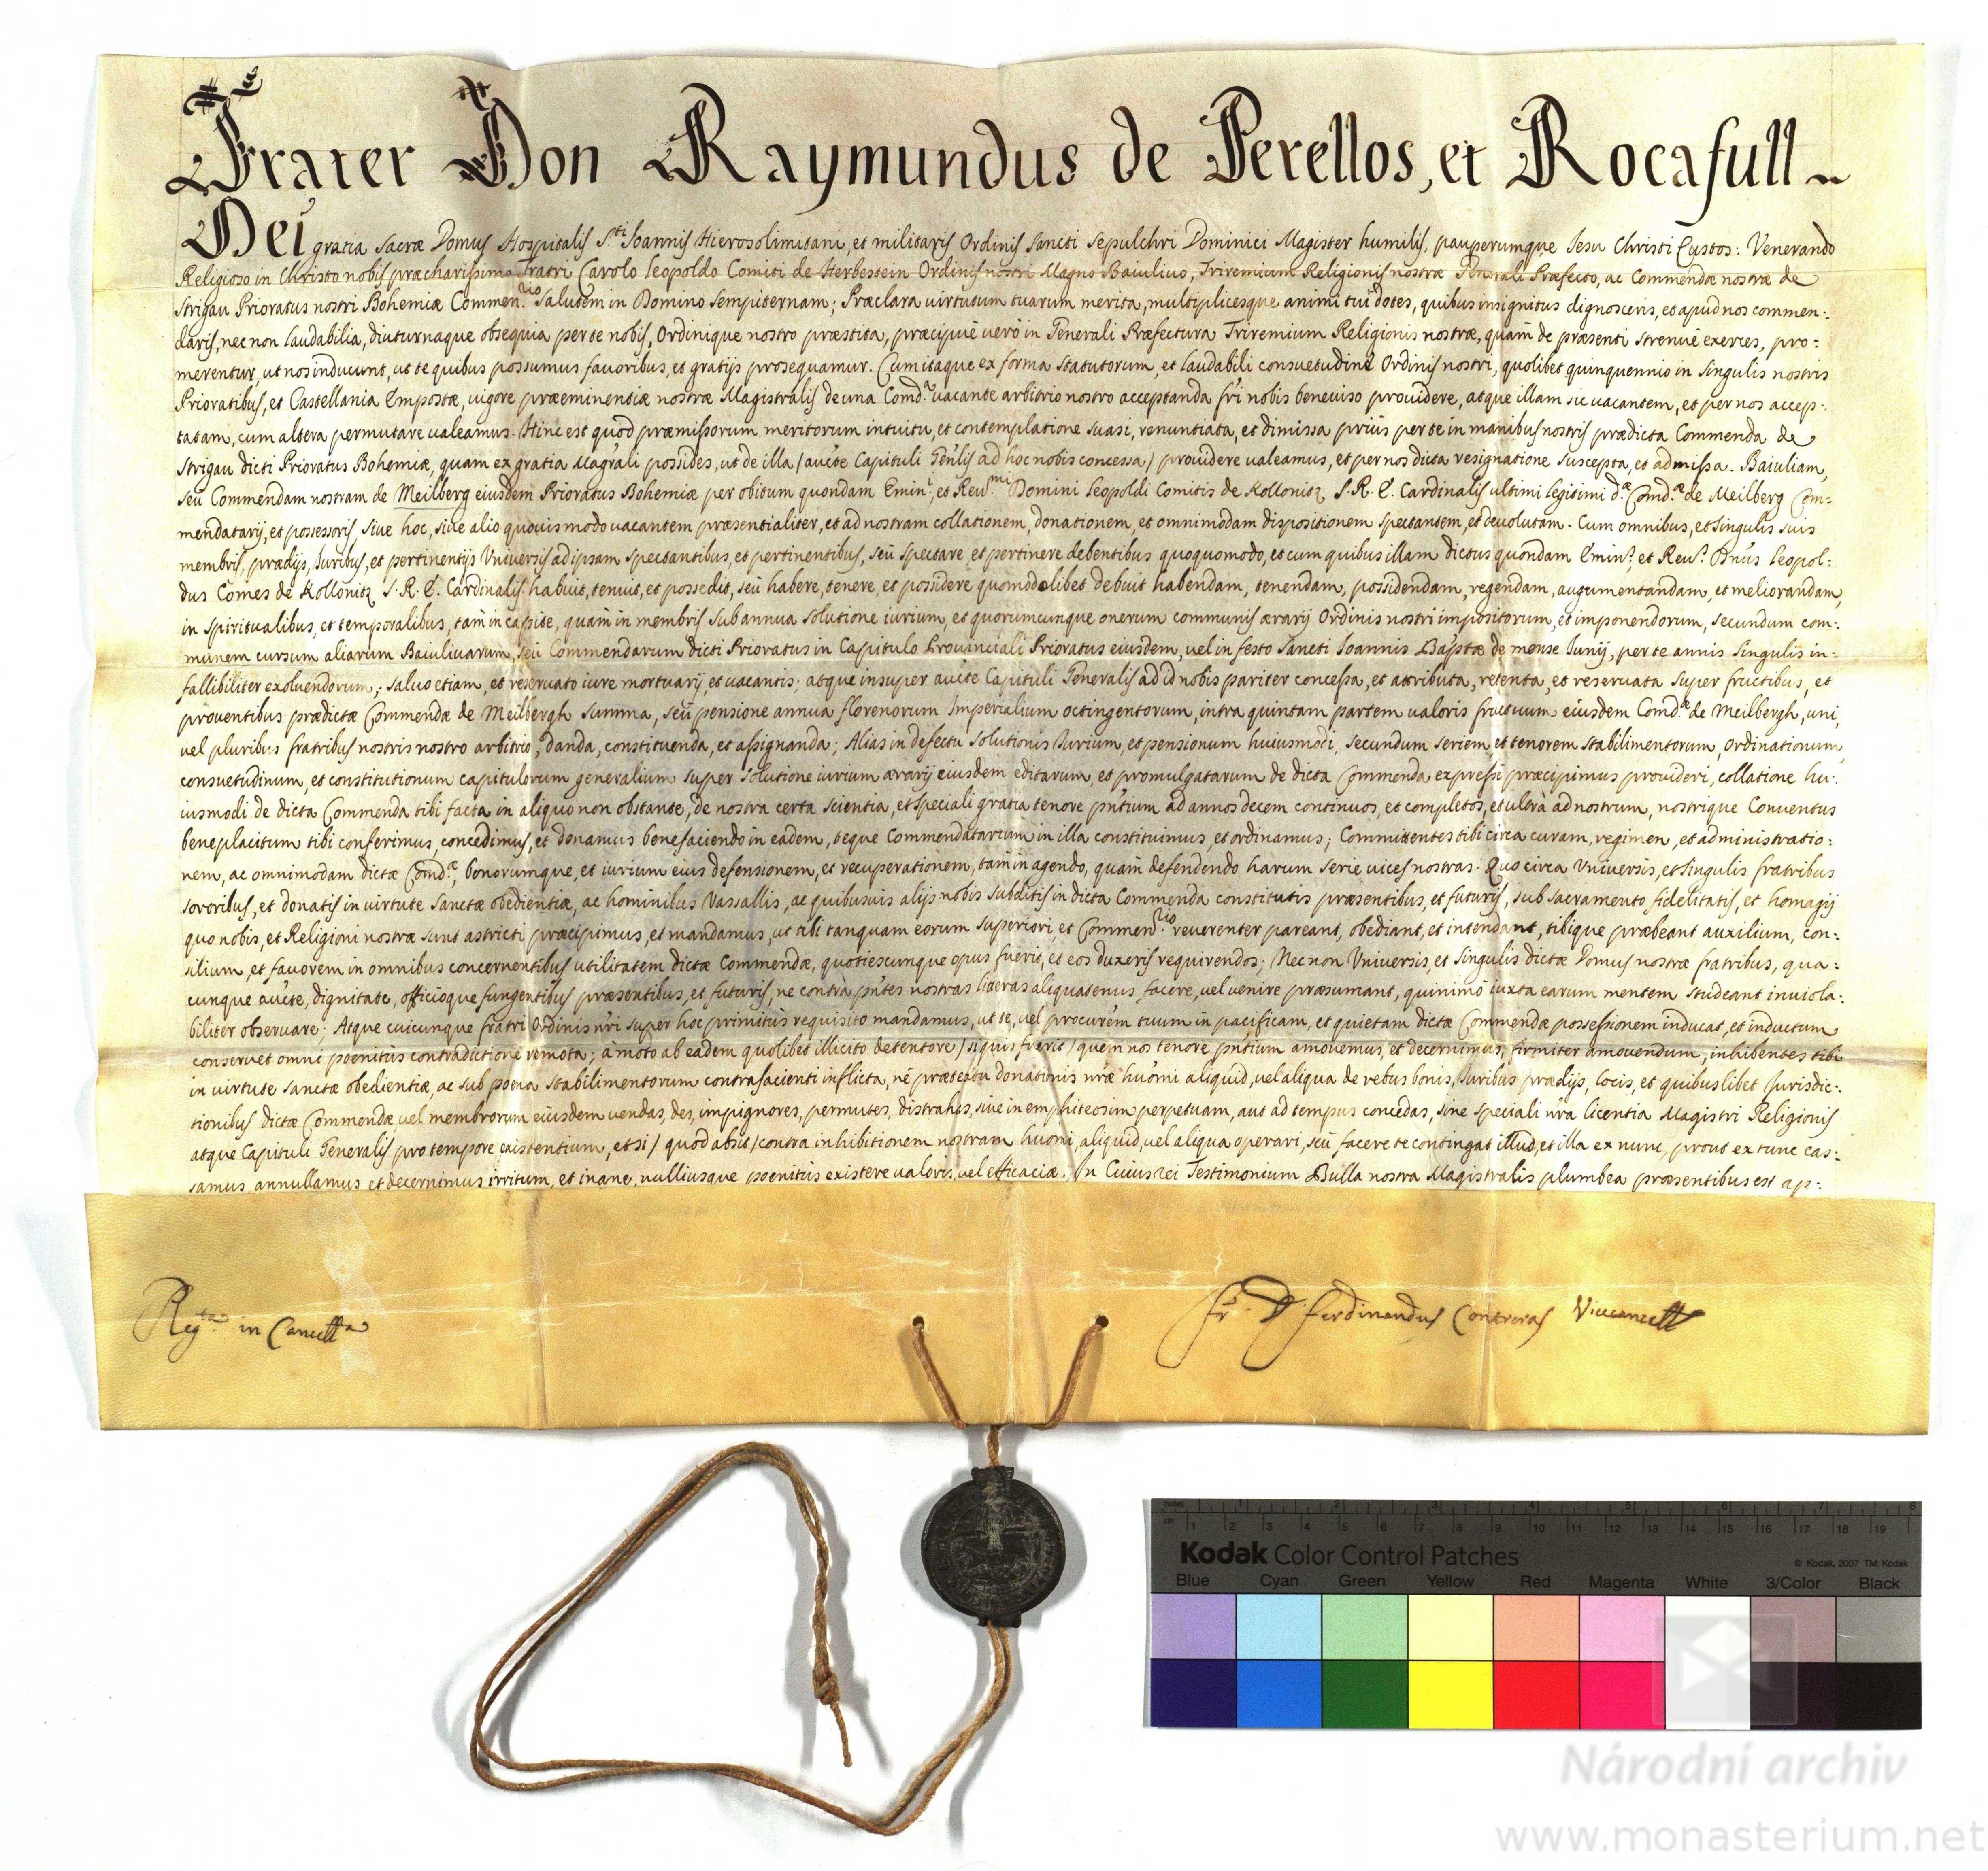 Frater Don Raymundus de Perellos, et Rocafull
Dei gratia Sacræ Domus Hospitalis S.ti Ioannis Hierosolimitani, et militaris Ordinis Sancti Sepulchri Dominici Magister humilis, pauperumque Iesu Christi Custos: Venerando
Religioso in Christo nobis præcharissimo Fratri Carolo Leopoldo Comiti de Herbestein Ordinis nostri Magno Baiulivo, Triremium Religionis nostræ Generali Præfecto, ac Commendæ nostræ de
Strigau Prioratus nostri Bohemiæ Commen.rio Salutem in Domino sempiternam; Præclara virtutum tuarum merita, multiplicesque animi tui dotes, quibus insignitus dignosceris, et apud nos commen-:
daris, nec non laudabilia, diuturnaque obsequia per te nobis, Ordinique nostro præstita, præcipuè verò in Generali Præfectura Triremium Religionis nostræ, quam de præsenti strenuè exerces, pro:
merentur, ut nos inducunt, ut te quibus possumus favoribus, et gratijs prosequamur. Cum itaque ex forma Statutorum, et laudabili consuetudine Ordinis nostri, quolibet quinquennio in singulis nostris
Prioratibus, et Castellania Empostæ, vigore præeminentiæ nostræ Magistralis de una Comd.a vacante arbitrio nostro acceptanda fri nobis beneviso providere, atque illam sic vacantem, et per nos accep-:
tatam, cum altera permutare valeamus. Hinc est quod præmissorum meritorum intuitu, et contemplatione suasi, renuntiata, et dimissa priùs per te in manibus nostris prædicta Commenda de
Strigau dicti Prioratus Bohemiæ, quam ex gratia Mag'rali possides, ut de illa / aucte Capituli Gen'lis ad hoc nobis concessa / providere valeamus, et per nos dicta resignatione suscepta, et admissa. Baiuliam,
seu Commendam nostram de Meilberg eiusdem Prioratus Bohemiæ per obitum quondam Emin.i, et Rev.mi Domini Leopoldi Comitis de Kollonitz S. R. E. Cardinalis ultimi legitimi d.æ Comd.æ de Meilberg Com-:
mendatarij, et possessoris, sive hoc, sive alio quovis modo vacantem præsentialiter, et ad nostram collationem, donationem, et omnimodam dispositionem spectantem, et devolutam. Cum omnibus, et singulis suis
membris, prædijs, Iuribus, et pertinentijs Universis ad ipsam spectantibus, et pertinentibus, seù spectare et pertinere debentibus quoquomodo, et cum quibus illam dictus quondam Emin.s et Rev.s Dnus Leopol-:
dus Comes de Kollonitz S. R. E. Cardinalis habuit, tenuit, et possedit, seù habere, tenere, et possidere quomodolibet debuit habendam, tenendam, possidendam, regendam, augumentandam, et meliorandam,
in spiritualibus, et temporalibus, tàm in capite, quàm in membris sub annua solutione iurium, et quorumcunque onerum communis ærarij Ordinis nostri impositorum, et imponendorum, secundum com-:
munem cursum aliarum Baiulivarum, seù Commendarum dicti Prioratus in Capitulo Provinciali Prioratus eiusdem, vel in festo Sancti Ioannis Bap'tæ de mense Iunij, per te annis singulis in-:
fallibiliter exolvendorum; salvo etiam, et reservato iure mortuarij, et vacantis; atque insuper aucte Capituli Generalis ad id nobis pariter concessa, et attributa, retenta, et reservata super fructibus, et
proventibus prædictæ Commendæ de Meilbergh summa, seù pensione annua florenorum Imperialium octingentorum, intra quintam partem valoris fructuum eiusdem Comd.æ de Meilbergh, uni,
vel pluribus fratribus nostris nostro arbitrio, danda, constituenda, et assignanda; Alias in defectu solutionis Iurium, et pensionum huiusmodi, secundum seriem, et tenorem stabilimentorum, Ordinationum
consuetudinum, et constitutionum capitulorum generalium super solutione iurium ærarij eiusdem editarum, et promulgatarum de dicta Commenda expressè præcipimus provideri, collatione hu-:
iusmodi de dicta Commenda tibi facta in aliquo non obstante, de nostra certa scientia, et speciali gratia tenore pn'tium ad annos decem continuos, et completos, et ultrà ad nostrum, nostrique Conventus
beneplacitum tibi conferimus, concedimus, et donamus benefaciendo in eadem, teque Commendatarium in illa constituimus, et ordinamus; Committentes tibi circa curam, regimen, et administratio:
nem, ac omnimodam dictæ Comd.æ, bonorumque, et iurium eius defensionem, et recuperationem, tàm in agendo, quàm defendendo harum serie vices nostras. Quo circa Universis, et singulis fratribus
sororibus, et donatis in virtute Sanctæ obedientiæ, ac hominibus Vassallis, ac quibusvis alijs nobis subditis in dicta Commenda constitutis præsentibus, et futuris, sub sacramento fidelitatis, et homagij
quo nobis, et Religioni nostræ sunt astricti præcipimus, et mandamus, ut tibi tanquam eorum superiori, et Commen.rio reverenter pareant, obediant, et intendant, tibique præbeant auxilium, con-:
silium, et favorem in omnibus concernentibus utilitatem dictæ Commendæ, quotiescunque opus fuerit, et eos duxeris requirendos; Nec non Universis, et singulis dictæ Domus nostræ fratribus, qua-:
cunque aucte, dignitate, officioque fungentibus præsentibus, et futuris, ne contrà pn'tes nostras literas aliquatenus facere, vel venire præsumant, quinimò iuxta earum mentem studeant inviola-:
biliter observare; Atque cuicunque fratri Ordinis n'ri super hoc primitùs requisito mandamus, ut te, vel procur'em tuum in pacificam, et quietam dictæ Commendæ possessionem inducat, et inductum
conservet omni poenitùs contradictione remota; àmoto ab eadem quolibet illicito detentore / si quis fuerit / quem nos tenore pn'tium amovemus, et decernimus, firmiter amovendum, inhibentes tibi
in virtute sanctæ obedientiæ, ac sub poena stabilimentorum contrafacienti inflicta, nè prætextu donationis n'ræ hu'mi aliquid, vel aliqua de rebus bonis, Iuribus prædijs, locis, et quibuslibet Iurisdic-:
tionibus dictæ Commendæ vel membrorum eiusdem vendas, des, impignores, permutes, distrahas, sive in emphiteosim perpetuam, aut ad tempus concedas, sine speciali n'ra licentia Magistri Religionis
atque Capituli Generalis pro tempore existentium, et si / quod absit / contra inhibitionem nostram hu'mi, aliquid, vel aliqua operari, seù facere te contingat illud, et illa ex nunc, prout ex tunc cas-:
samus, annullamus et decernimus irritum, et inane, nulliusque poenitùs existere valoris, vel efficaciæ. In Cuius rei Testimonium Bulla nostra Magistralis plumbea præsentibus est ap-:
Reg.ta in Cancell.a
Fr. D. Ferdinandus Contreras Vicecancell.s
inches 1 2 3 4 5 6 7 8
cm 1 2 3 4 5 6 7 8 9 10 11 12 13 14 15 16 17 18 19
Kodak Color Control Patches
© Kodak, 2007 TM: Kodak
Blue Cyan Green Yellow Red Magenta White 3/Color Black
Národní archiv
www.monasterium.net